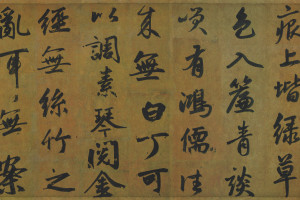 痕上堦綠草
色入簾青談
咲有鴻儒往
来無白丁可
以調素琴閱金
經無絲竹之
亂耳無案